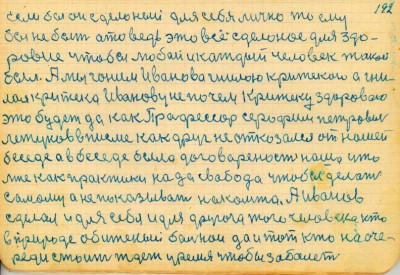 192
сем бы он сделоный для себя лично то ему
бы не быть а то ведь это всё сделоное для здо-
ровие чтобы любай и каждый человек такой
был. А мы гоним Иванова гнилою критекою а гни-
лая критека Иванову не по чем Критеку здоровою
это будет да как Прафессор серафим петрович
летунов в писме как друг не отказался от нашей
беседе а в беседе была договореность наша что
мне как практики нада свабода чтобы делать
самому а не показывать на кому та. А Иванов
сделал и для себя и для другога того человека кто
в природе обиженый бальной да и тот кто на оче-
реди стоит ждет время чтобы забалеть